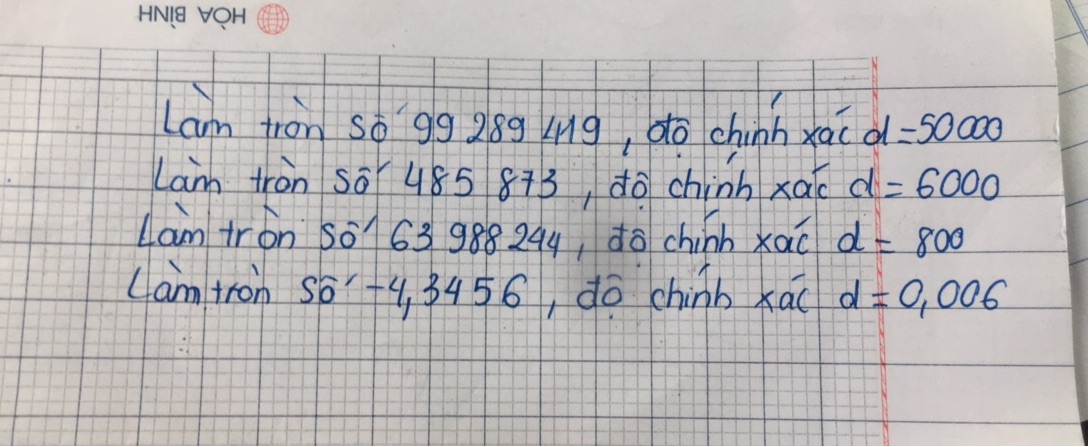 HÒA BÌNH
Làm tròn số 99 289 419, độ chính xác d = 50 000
Làm tròn số 485 873, độ chính xác d = 6000
Làm tròn số 63 988 244, độ chính xác d = 800
Làm tròn số -4,3456, độ chính xác d = 0,006